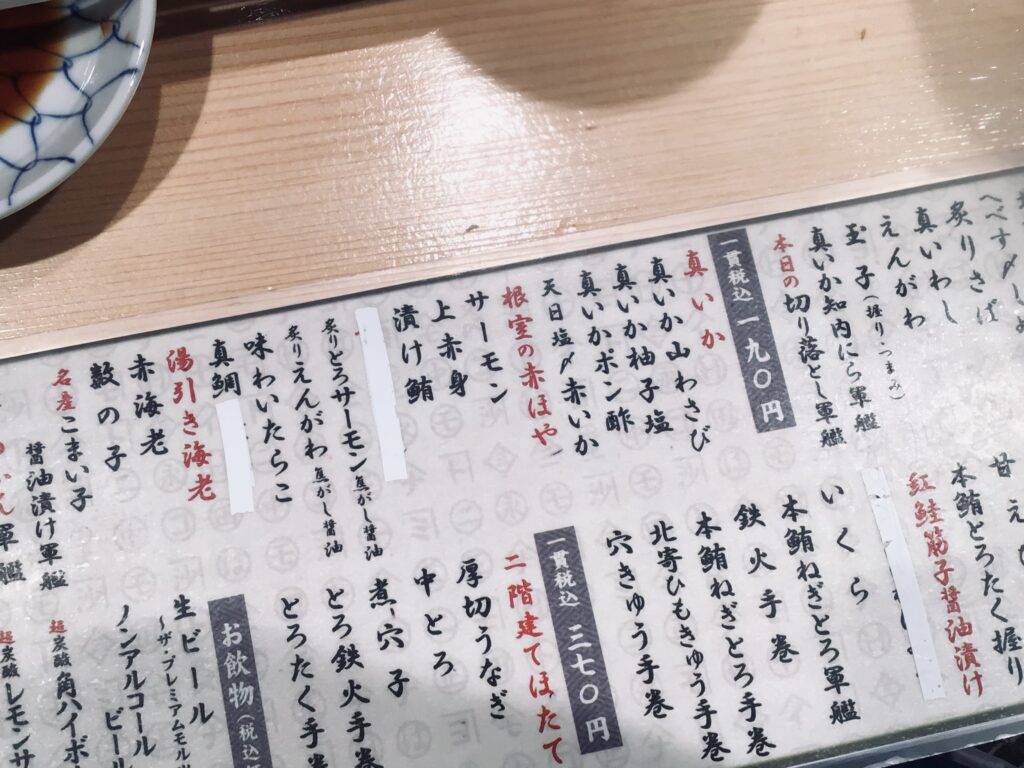 へべす〆し
炙りさば
真いわし
えんがわ
玉子(握り・つまみ)
真いか知内にら軍艦
本日の切り落とし軍艦
一貫税込 一九〇円
真いか
真いか山わさび
真いか柚子塩
真いかポン酢
天日塩〆赤いか
根室の赤ほや
サーモン
上赤身
漬け鮪
炙りとろサーモン焦がし醤油
炙りえんがわ焦がし醤油
味わいたらこ
真鯛
湯引き海老
赤海老
数の子
名産こまい子
醤油漬け軍艦
軍艦
甘え
本鮪とろたく握り
紅鮭筋子醤油漬け
いくら
本鮪ねぎとろ軍艦
鉄火手巻
本鮪ねぎとろ手巻
北寄ひもきゅう手巻
穴きゅう手巻
一貫税込 三七〇円
二階建てほたて
厚切うなぎ
中とろ
煮穴子
とろ鉄火手巻
とろたく手巻
お飲物(税込
生ビール
~ザ・プレミアムモル
ノンアルコール
ビール
超炭酸角ハイボ
超炭酸レモンサ